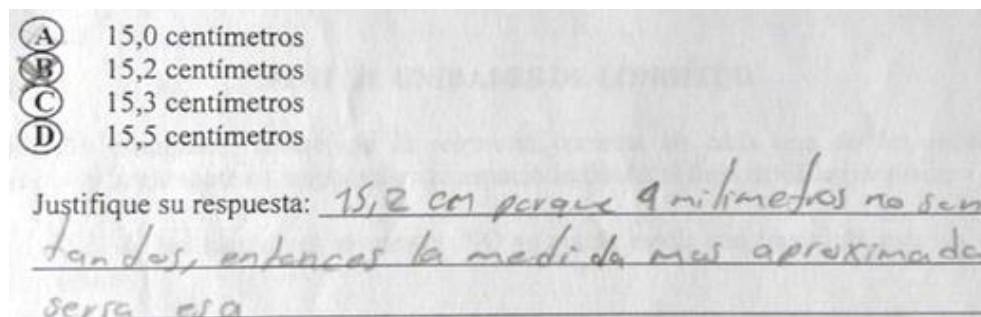 A 15,0 centímetros
B 15,2 centímetros
C 15,3 centímetros
D 15,5 centímetros
Justifique su respuesta: 15,2 cm porque 4 milimetros no son
tandos, entances la medida mas aproximada
serra esa